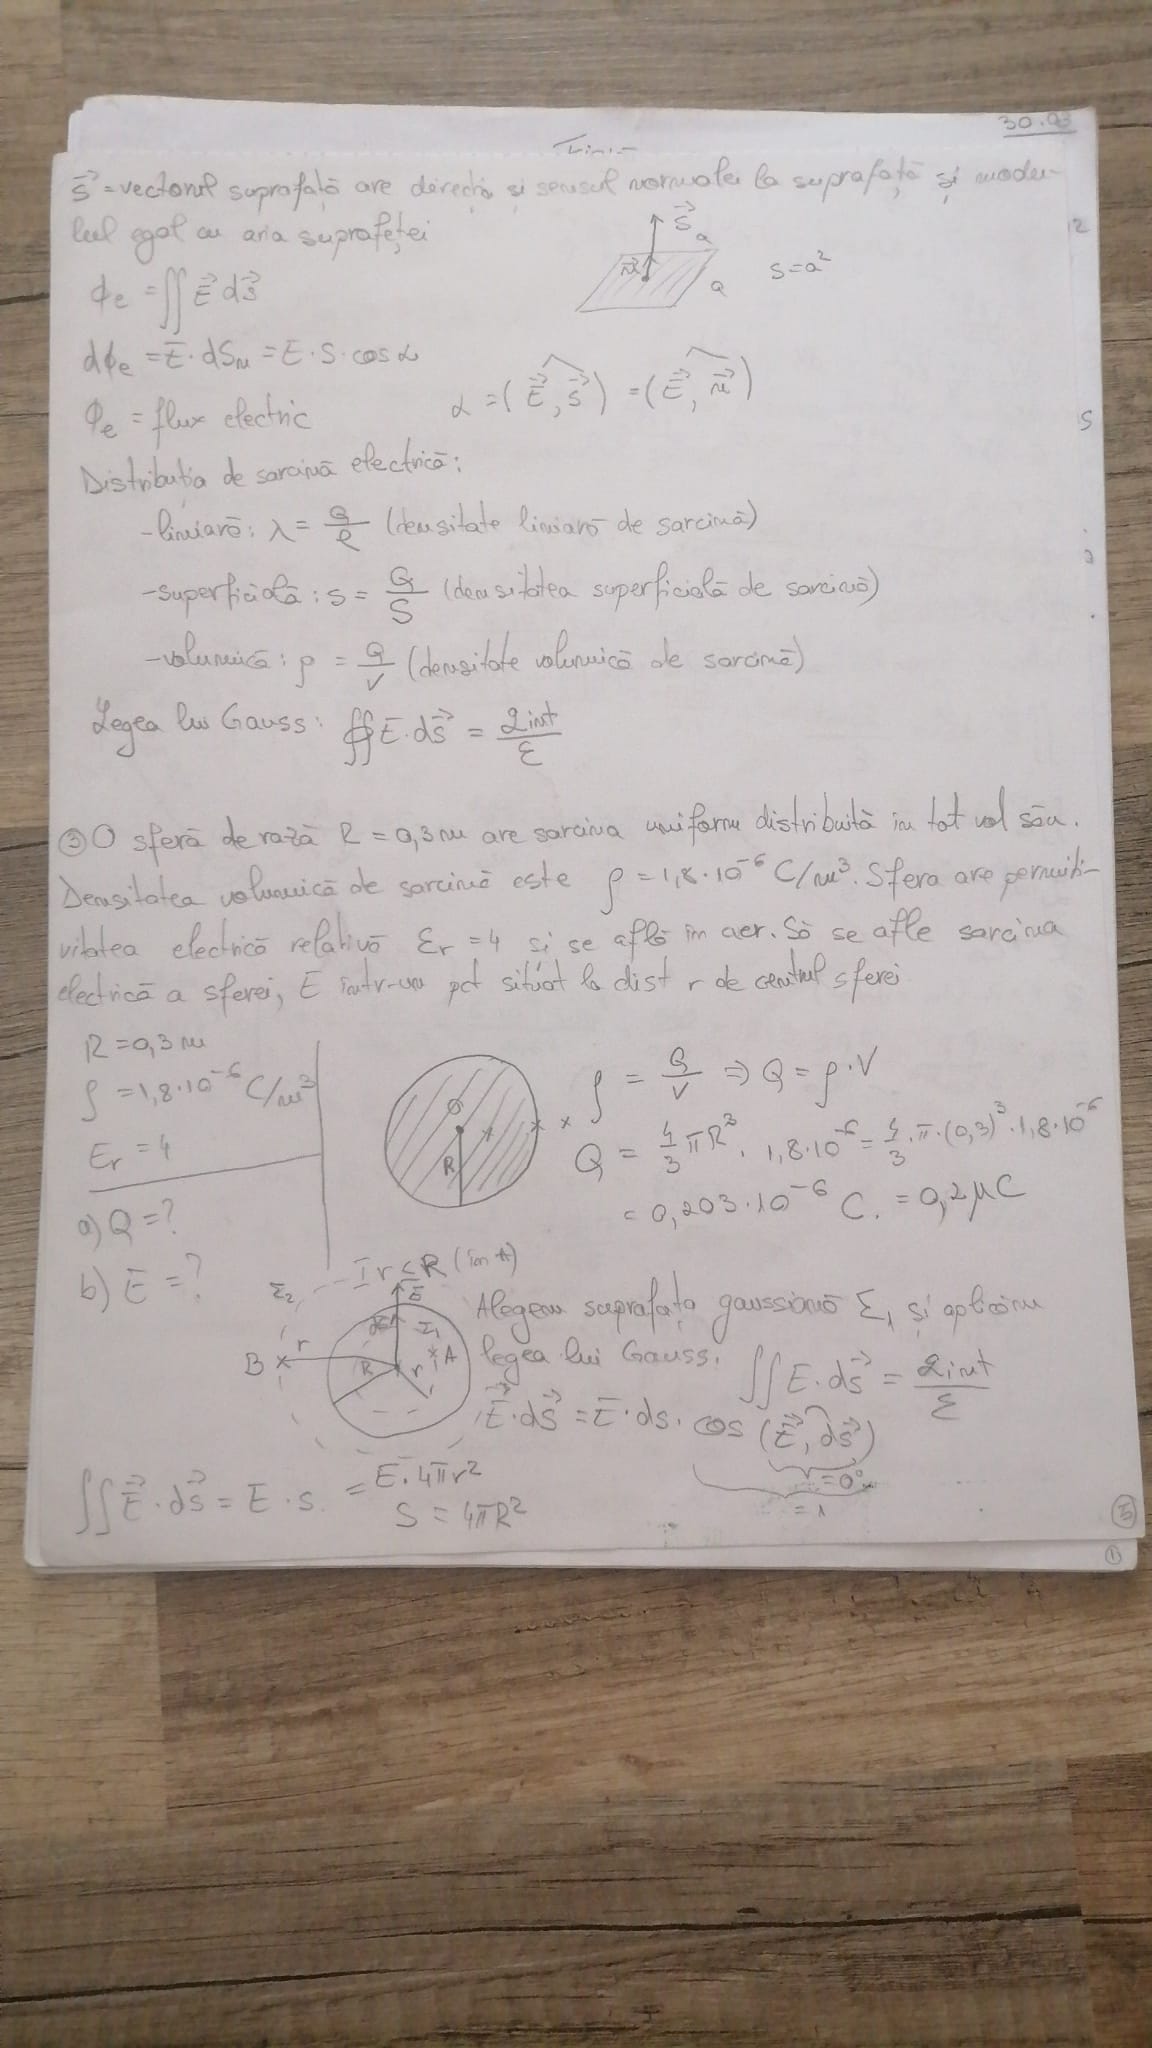 30.03
S⃗ = vectorul suprafață are direcția și sensul normalei la suprafață și modu-
lul egal cu aria suprafeței
S⃗ a
n⃗ a S = a²
ϕe = ∬ E⃗ ds⃗
dϕe = E · dSn = E · S · cos α
α = (E⃗, S⃗) = (E⃗, n⃗)
Φe = flux electric
Distribuția de sarcină electrică:
- liniară: λ = Q/l (densitate liniară de sarcină)
- superficială: s = Q/S (densitatea superficială de sarcină)
- volumică: ρ = Q/V (densitate volumică de sarcină)
Legea lui Gauss: ∯ E · ds⃗ = qint/ε
③ O sferă de rază R = 0,3 m are sarcina uniform distribuită în tot vol său.
Densitatea volumică de sarcină este ρ = 1,8 · 10⁻⁶ C/m³. Sfera are permiti-
vitatea electrică relativă εr = 4 și se află în aer. Să se afle sarcina
electrică a sferei, E într-un pct situat la dist r de centrul sferei
R = 0,3 m
ρ = 1,8 · 10⁻⁶ C/m³
εr = 4
a) Q = ?
b) E = ?
O
R
ρ = Q/V ⇒ Q = ρ · V
Q = 4/3 πR³ · 1,8 · 10⁻⁶ = 4/3 · π · (0,3)³ · 1,8 · 10⁻⁶
= 0,203 · 10⁻⁶ C. = 0,2 μC
I r < R (în A)
Σ2 E⃗
Σ1
B r R r A
Alegem suprafața gaussiană Σ1 și aplicăm
legea lui Gauss. ∬ E · ds⃗ = qint/ε
E⃗ · ds⃗ = E · ds · cos (E⃗, ds⃗)
= 0°
= 1
∬ E⃗ · ds⃗ = E · s. = E · 4πr²
S = 4πR²
⑤
①